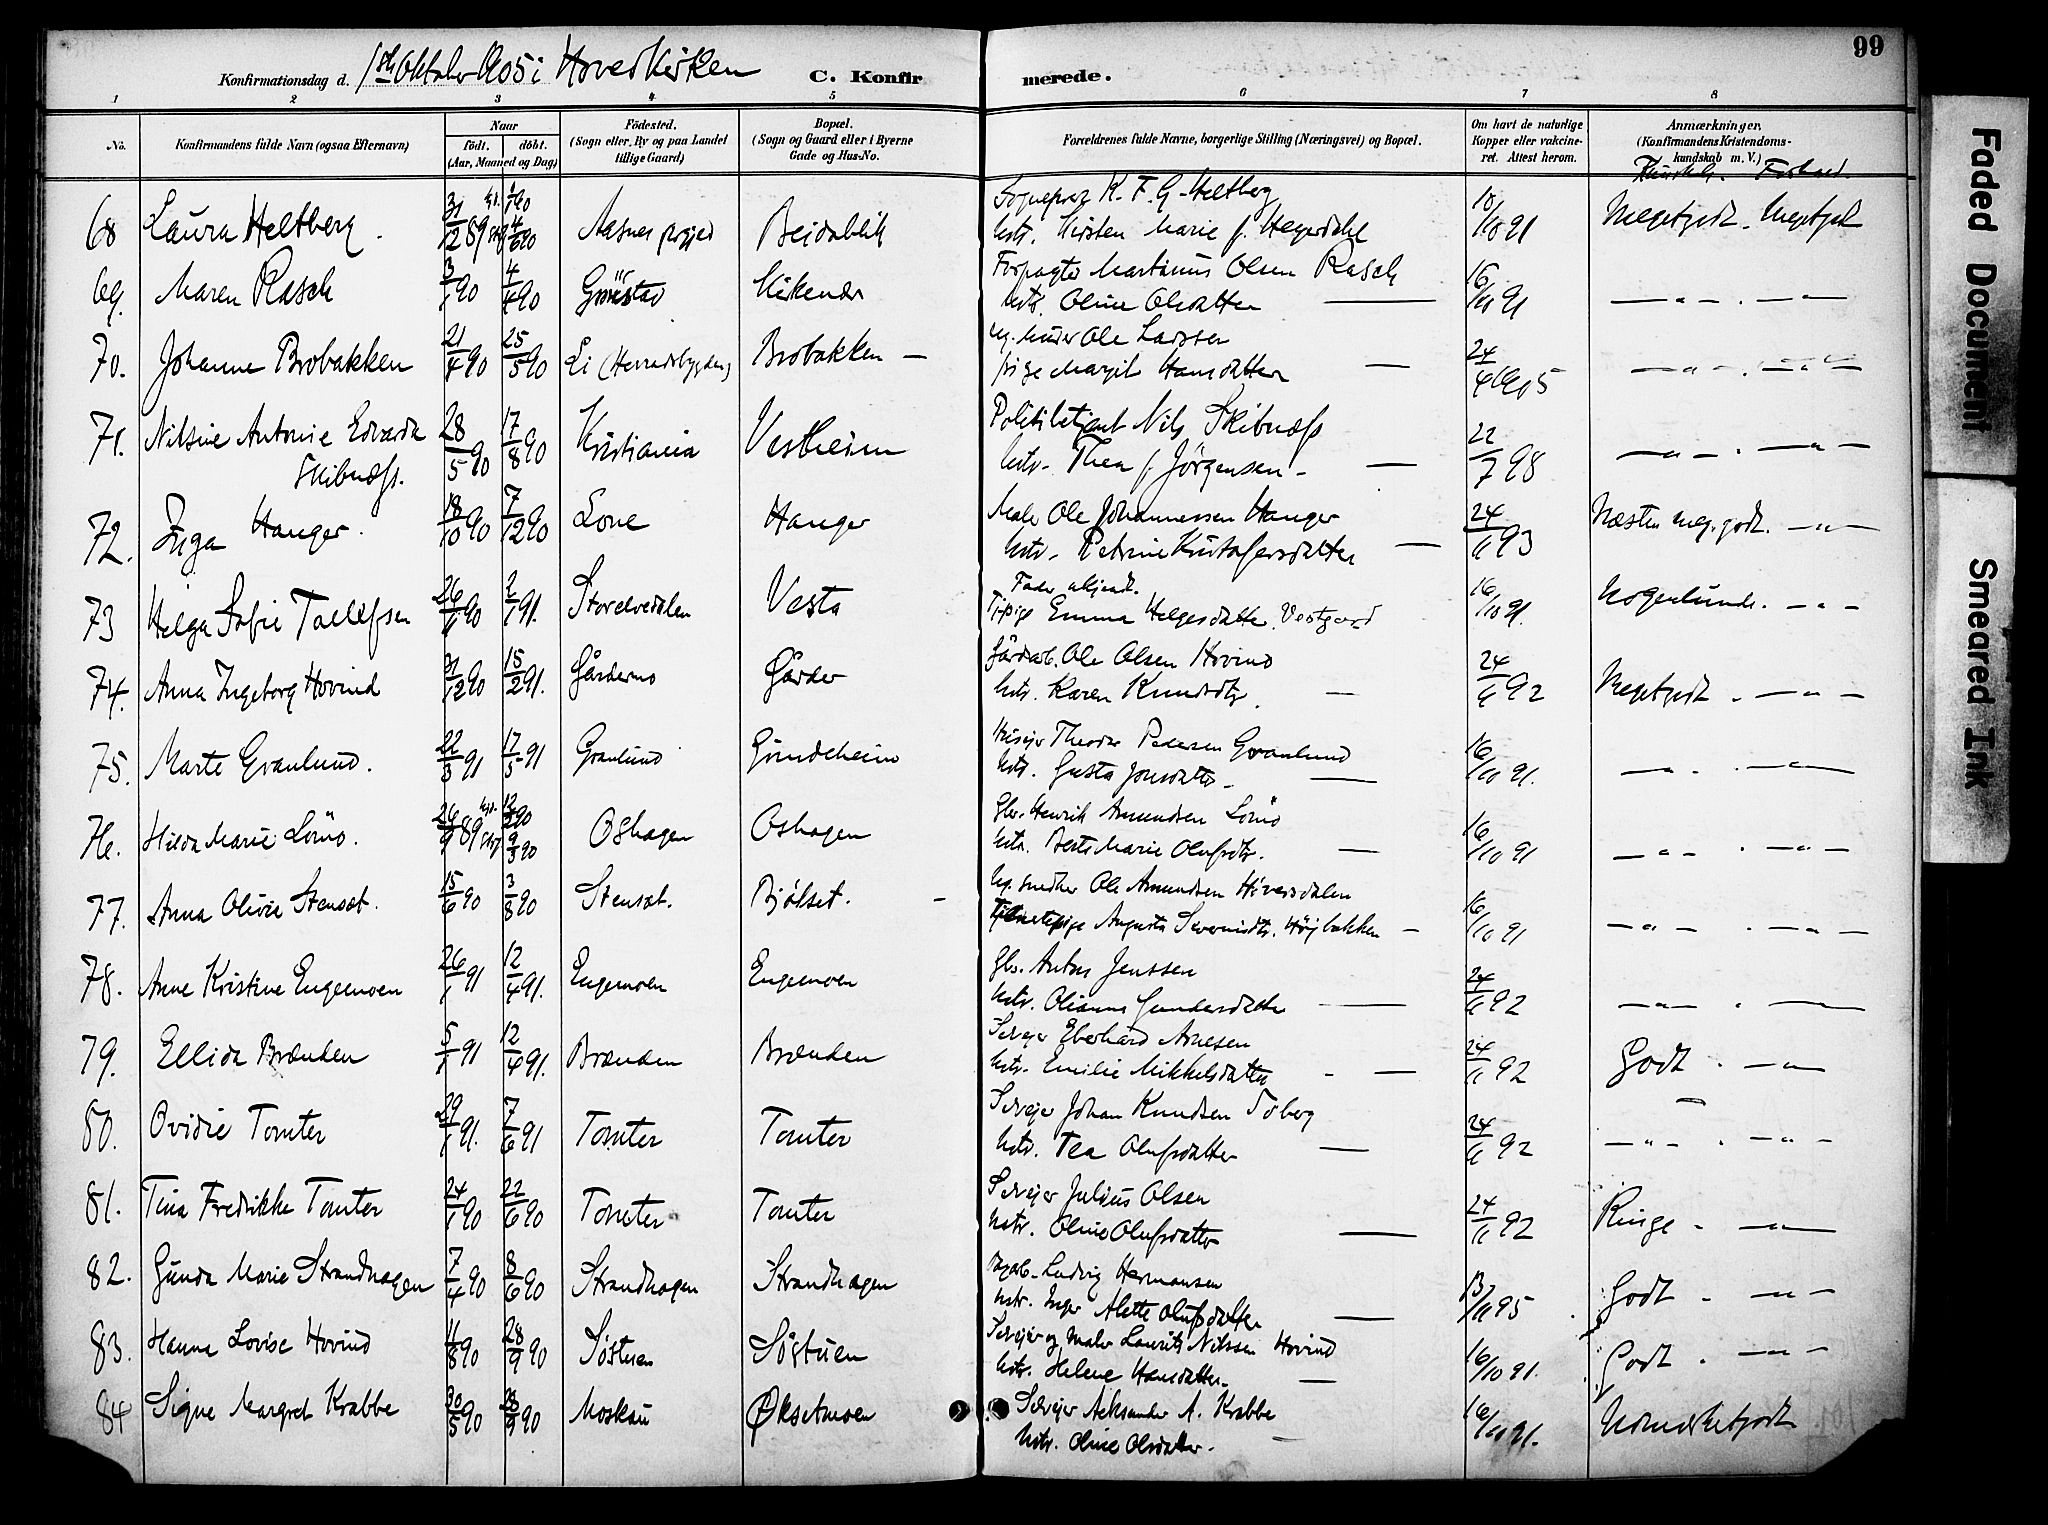 99
Konfirmationsdag d. 1ste Oktober 1905 i Hovedkirken C. Konfirmerede.
1 2 3 4 5 6 7 8
No. Konfirmandens fulde Navn (ogsaa Efternavn) Naar født. døbt. (Aar, Maaned og Dag) Fødested. (Sogn eller By og paa Landet tillige Gaard) Bopæl. (Sogn og Gaard eller i Byerne Gade og Hus-No. Forældrenes fulde Navne, borgerlige Stilling (Næringsvei) og Bopæl. Om havt de naturlige Kopper eller vakcineret. Attest herom. Anmærkninger. (Konfirmandens Kristendomskundskab m. V.)
Kundsk. Forhold.
68 Laura Heltberg. 31/12 89 4/6 90 Aasnes prgjed Beidablik Sognepræst K. F. G. Heltberg
Hstr. Kirsten Marie f. Hegerdahl 16/10 91 Megetgodt. Megetgodt
69. Maren Rasch 3/1 90 4/4 90 Kirkenær Forpagter Martinus Olsen Rasch
Hstr. Oline Olsdatter — 16/10 91 — " — . — " —
70. Johanne Brobakken 21/4 90 25/5 90 Li (Herradsbygden) Brobakken — Ole Larssen
pige Margit Hansdatter — 24/4 1905 — " — . — " —
71. Nilsine Antonie Edvarda 28/5 90 17/8 90 Kristiania Vestheim Politibetjent Nils Skibnæss
Skibnæss. Hstr. Thea f. Jörgensen — 22/7 98 — " — . — " —
72. Inga Hanger. 18/10 90 7/12 90 Lone Hanger Maler Ole Johannessen Hanger
Hstr. Petrine Kristofersdatter — 24/6 93 Næsten meg. godt. — " —
73 Helga Sofie Tollefsen 26/11 90 2/1 91. Storelvedalen Vesta Fader ubekjendt.
Tj.pige Emma Helgesdatter Vestgaard 16/10 91. Nogenlunde. — " —
74. Anna Ingeborg Hovind 31/12 90 15/2 91. Gårdermo Gårder Gårdarb. Ole Olsen Hovind
Hstr. Karen Knudsdtr. — 24/6 92 Megetgodt . — " —
75. Marte Granlund. 22/3 91 17/5 91 Granlund Grundeheim Husejer Theodor Pedersen Granlund
Hstr. Gusta Jonsdatter — 16/10 91. — " — . — " —
76. Hilda Marie Lömo. 26/9 89 9/3 90 Oshagen Oshagen Gbr. Henrik Amundsen Lömo
Hstr. Berte Marie Olufsdtr. — 16/10 91 — " — . — " —
77. Anna Olivie Stensæt. 15/6 90 3/8 90 Stensæt. Bjølset. — Ug. snedker Ole Amundsen Höversdalen
Tjenestepige Augusta Severinsdtr. Höjbakken — 16/10 91 — " — . — " —
78. Anne Kristine Engemoen 26/1 91 12/4 91. Engemoen Engemoen Gbr. Anton Jenssen
Hstr. Gundersdatter — 24/6 92 — " — . — " —
79. Ellida Brænden 5/1 91 12/4 91. Brænden Brænden Selvejer Eberhard Arnesen
Hstr. Emilie Mikkelsdatter — 24/6 92 Godt . — " —
80. Ovidie Tomter 29/1 91. 7/6 91 Tomter Tomter Selvejer Johan Knudsen Soberg
Hstr. Tea Olufsdatter — 24/6 92 — " — . — " —
81. Tina Fredrikke Tomter 24/1 90 22/6 90 Tomter Tomter Selvejer Julius Olsen
Hstr. Oline Olufsdatter — 24/6 92 Ringe . — " —
82. Gunda Marie Strandhagen 7/4 90 8/6 90 Strandhagen Strandhagen Ludvig Hermansen
Hstr. Inger Alette Olufsdatter — 13/11 95 Godt . — " —
83. Hanna Lovise Hovind 11/8 90 28/9 90 Söstuen Söstuen Selvejer og Maler Laurits Nilssen Hovind
Hstr. Helene Hansdatter — 16/10 91. Godt . — " —
84 Signe Margret Krabbe 30/5 90 28/9 90 Moskau Øksetmoen Selvejer Aleksander A. Krabbe
Hstr. Oline Olsdatter. — 16/10 91. Udmerketgodt
Faded Document
Smeared Ink